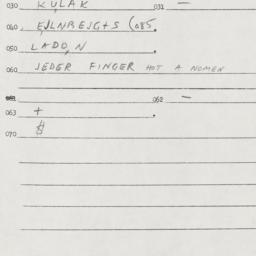 030 KULAK 031 —
040 EJLNBEJGTS (085.
050 LADO,N .
060 JEDER FINGER HOT A NOMEN
061 062 —
063 + .
070 $